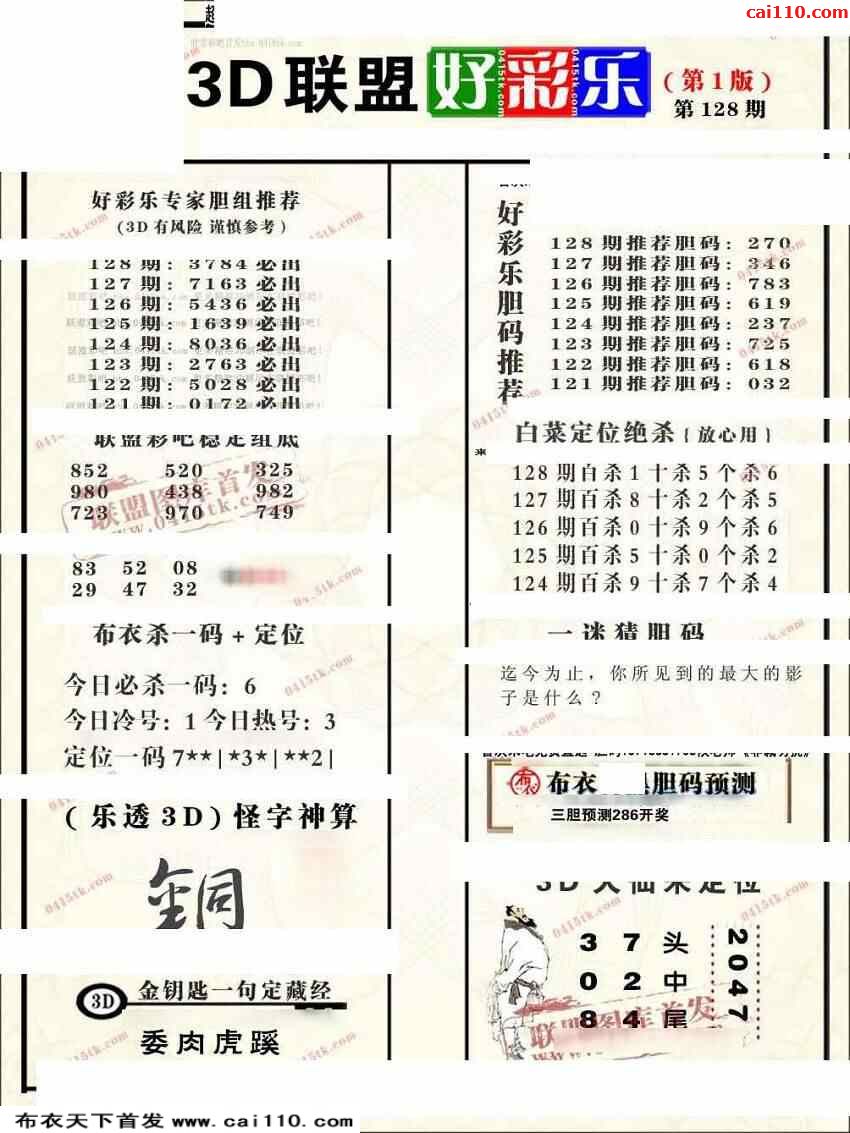 cai110.com
3D联盟好彩乐
(第1版)
第128期
好彩乐专家胆组推荐
(3D有风险 谨慎参考)
128期: 3784必出
127期: 7163必出
126期: 5436必出
125期: 1639必出
124期: 8036必出
123期: 2763必出
122期: 5028必出
121期: 0172必出
联盟彩吧稳定组底
852 520 325
980 438 982
723 970 749
联盟图库首发
www.0415tk.com
83 52 08
29 47 32
布衣杀一码+定位
今日必杀一码: 6
今日冷号: 1 今日热号: 3
定位一码 7**|*3*|**2|
(乐透3D)怪字神算
銅
3D 金钥匙一句定藏经
委肉虎蹊
好彩乐胆码推荐
128期推荐胆码: 270
127期推荐胆码: 346
126期推荐胆码: 783
125期推荐胆码: 619
124期推荐胆码: 237
123期推荐胆码: 725
122期推荐胆码: 618
121期推荐胆码: 032
白菜定位绝杀{放心用}
来
128期百杀1十杀5个杀6
127期百杀8十杀2个杀5
126期百杀0十杀9个杀6
125期百杀5十杀0个杀2
124期百杀9十杀7个杀4
一迷猜胆码
迄今为止，你所见到的最大的影
子是什么?
布衣 布衣 胆码预测
三胆预测286开奖
3D大仙来定位
3 7 头
0 2 中
8 4 尾
2047
联盟图库首发
0415tk.com
布衣天下首发 www.cai110.com